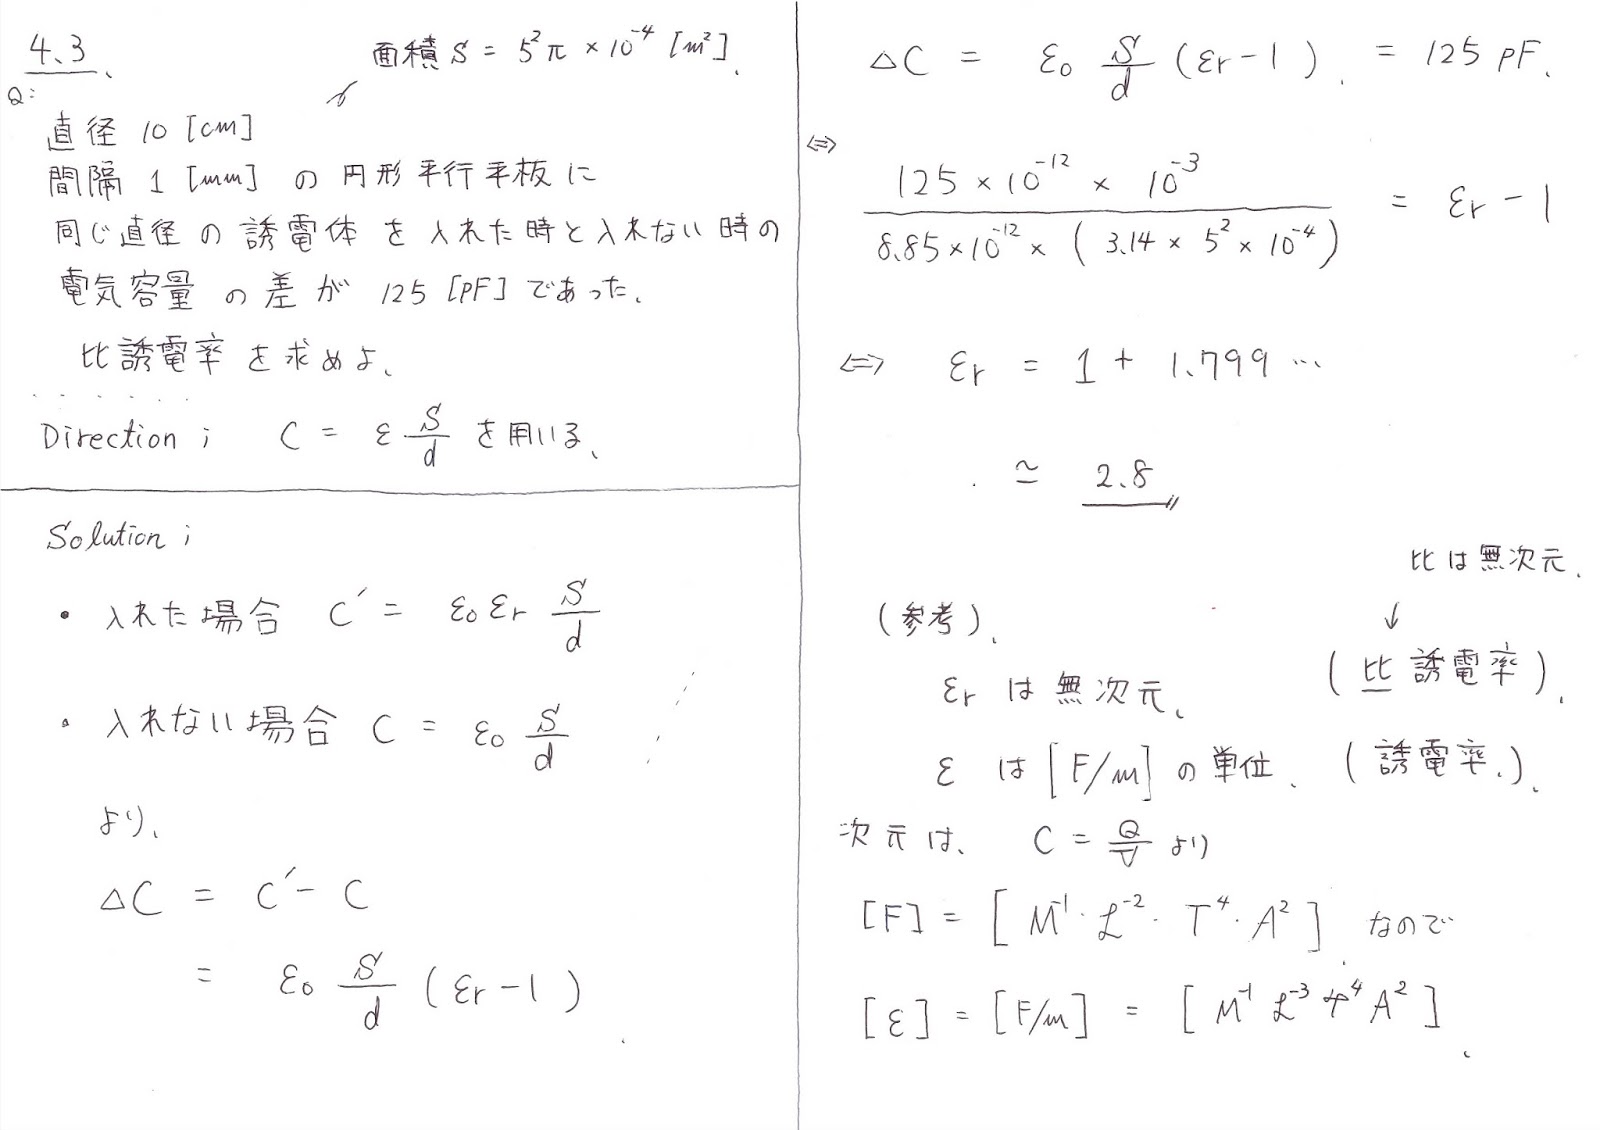 4.3
面積 S = 5²π × 10⁻⁴ [m²].
Q:
直径 10 [cm]
間隔 1 [mm] の 円形平行平板に
同じ直径 の 誘電体 を 入れた時と入れない時の
電気容量 の 差 が 125 [pF] であった.
比誘電率 を 求めよ.
Direction ; C = ε S/d を用いる.
Solution ;
・ 入れた場合 C′ = ε₀ εr S/d
・ 入れない場合 C = ε₀ S/d
より,
△C = C′ − C
= ε₀ S/d (εr − 1).
△C = ε₀ S/d (εr − 1). = 125 pF.
⇔ 125 × 10⁻¹² × 10⁻³ / 8.85 × 10⁻¹² × (3.14 × 5² × 10⁻⁴) = εr − 1
⇔ εr = 1 + 1.799 …
≃ 2.8
比は無次元.
(参考).
↓
εr は 無次元. (比誘電率).
ε は [F/m] の 単位. (誘電率.).
次元は, C = Q/V より
[F] = [M⁻¹・L⁻²・T⁴・A²] なので
[ε] = [F/m] = [M⁻¹ L⁻³ T⁴ A²].